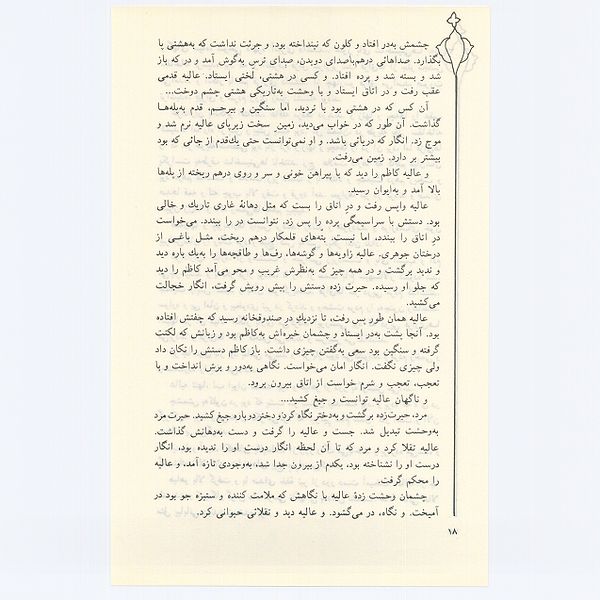 چشمش به‌در افتاد و کلون که نینداخته بود. و جرئت نداشت که به‌هشتی پا
بگذارد. صداهائی درهم‌باصدای دویدن، صدای ترس به‌گوش آمد و در که باز
شد و بسته شد و پرده افتاد. و کسی در هشتی، لختی ایستاد. عالیه قدمی
عقب رفت و در اتاق ایستاد و با وحشت به‌تاریکی هشتی چشم دوخت...
آن کس که در هشتی بود با تردید، اما سنگین و بیرحم، قدم به‌پله‌ها
گذاشت. آن طور که در خواب می‌دید، زمین سخت زیرپای عالیه نرم شد و
موج زد. انگار که دریائی باشد. و او نمی‌توانست حتی یك‌قدم از جائی که بود
بیشتر بر دارد. زمین می‌رفت.
و عالیه کاظم را دید که با پیراهن خونی و سر و روی درهم ریخته از پله‌ها
بالا آمد و به‌ایوان رسید.
عالیه واپس رفت و در اتاق را بست که مثل دهانهٔ غاری تاریك و خالی
بود. دستش با سراسیمگی پرده را پس زد. نتوانست در را ببندد. می‌خواست
در اتاق را ببندد، اما نبست. بته‌های قلمکار درهم ریخت، مثـل باغـی از
درختان جوهری. عالیه زاویه‌ها و گوشه‌ها، رف‌ها و طاقچه‌ها را به‌یك باره دید
و ندید برگشت و در همه چیز که به‌نظرش غریب و محو می‌آمد کاظم را دید
که جلو او رسیده. حیرت زده دستش را پیش رویش گرفت، انگار خجالت
می‌کشید.
عالیه همان طور پس رفت، تا نزدیك در صندوقخانه رسید که چفتش افتاده
بود. آنجا پشت به‌در ایستاد و چشمان خیره‌اش به‌کاظم بود و زبانش که لکنت
گرفته و سنگین بود سعی به‌گفتن چیزی داشت. باز کاظم دستش را تکان داد
ولی چیزی نگفت. انگار امان می‌خواست. نگاهی به‌دور و برش انداخت و با
تعجب، تعجب و شرم خواست از اتاق بیرون برود.
و ناگهان عالیه توانست و جیغ کشید...
مرد، حیرت‌زده برگشت و به‌دختر نگاه کرد و دختر دوباره جیغ کشید. حیرت مرد
به‌وحشت تبدیل شد. جست و عالیه را گرفت و دست به‌دهانش گذاشت.
عالیه تقلا کرد و مرد که تا آن لحظه انگار درست او را ندیده بود، انگار
درست او را نشناخته بود، یکدم از بیرون جدا شد، به‌وجودی تازه آمد، و عالیه
را محکم گرفت.
چشمان وحشت زدهٔ عالیه با نگاهش که ملامت کننده و ستیزه جو بود در
آمیخت. و نگاه، در می‌گشود. و عالیه دید و تقلائی حیوانی کرد.
۱۸